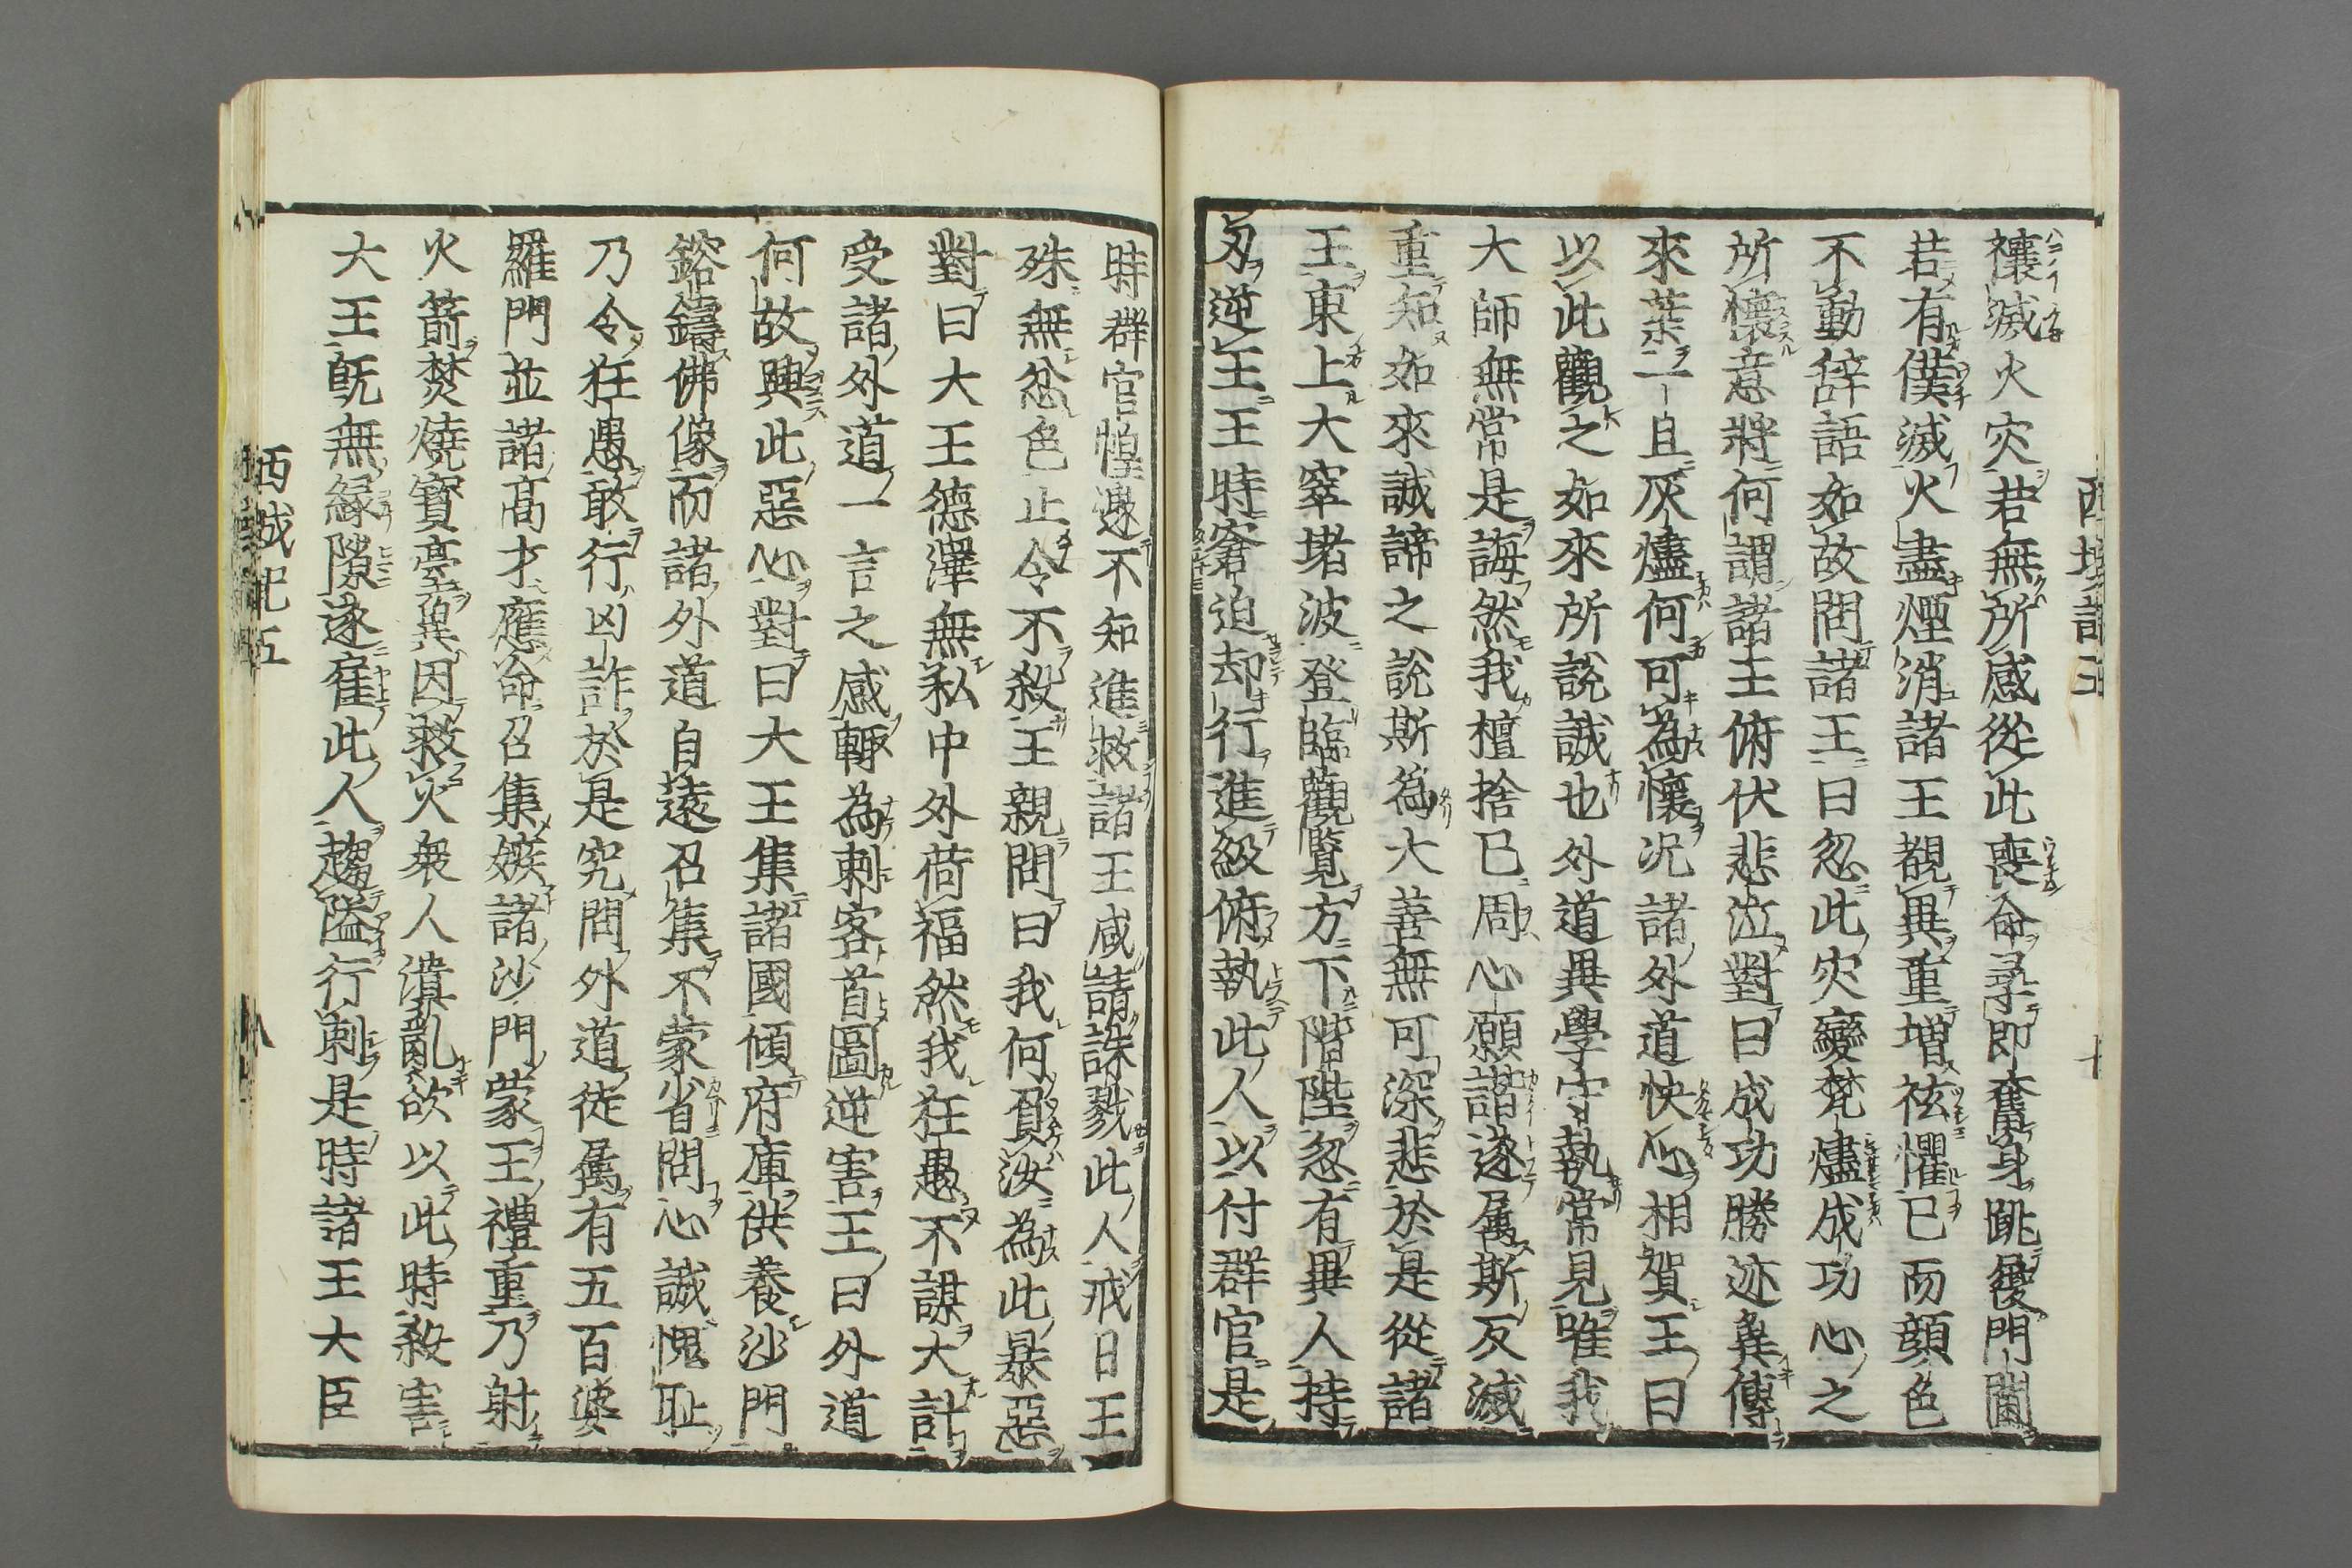 西域記五
禳滅火灾若無所感從此喪命尋即奮身跳履門閫
若有僕滅火盡煙消諸王覩異重増祛懼已而顔色
不動辞語如故問諸王曰忽此灾變梵燼成功心之
所懷意將何謂諸王俯伏悲泣對曰成功勝迹兾傳
來葉一旦灰燼何可為懷况諸外道快心相賀王曰
以此觀之如來所説誠也外道異學守執常見唯我
大師無常是誨然我檀捨已周心願諧遂属斯変滅
重知如來誠諦之説斯為大善無可深悲於是從諸
王東上大窣堵波登臨觀覧方下階陛忽有異人持
刄逆王王時窘迫却行進級俯執此人以付群官是
時群官惶遽不知進救諸王咸請誅戮此人戒日王
殊無忿色止令不殺王親問曰我何負汝為此暴惡
對曰大王德澤無私中外荷福然我狂愚不謀大計
受諸外道一言之感輙為刺客首圖逆害王曰外道
何故興此惡心對曰大王集諸國傾府庫供養沙門
鎔鑄佛像而諸外道自遠召集不蒙省問心誠愧耻
乃令狂愚敢行凶詐於是究問外道徒属有五百婆
羅門並諸髙才應命召集嫉諸沙門蒙王禮重乃射
火箭焚燒寳臺兾因救火衆人潰亂欲以此時殺害
大王旣無縁隙遂雇此人趨隘行刺是時諸王大臣
西域記五